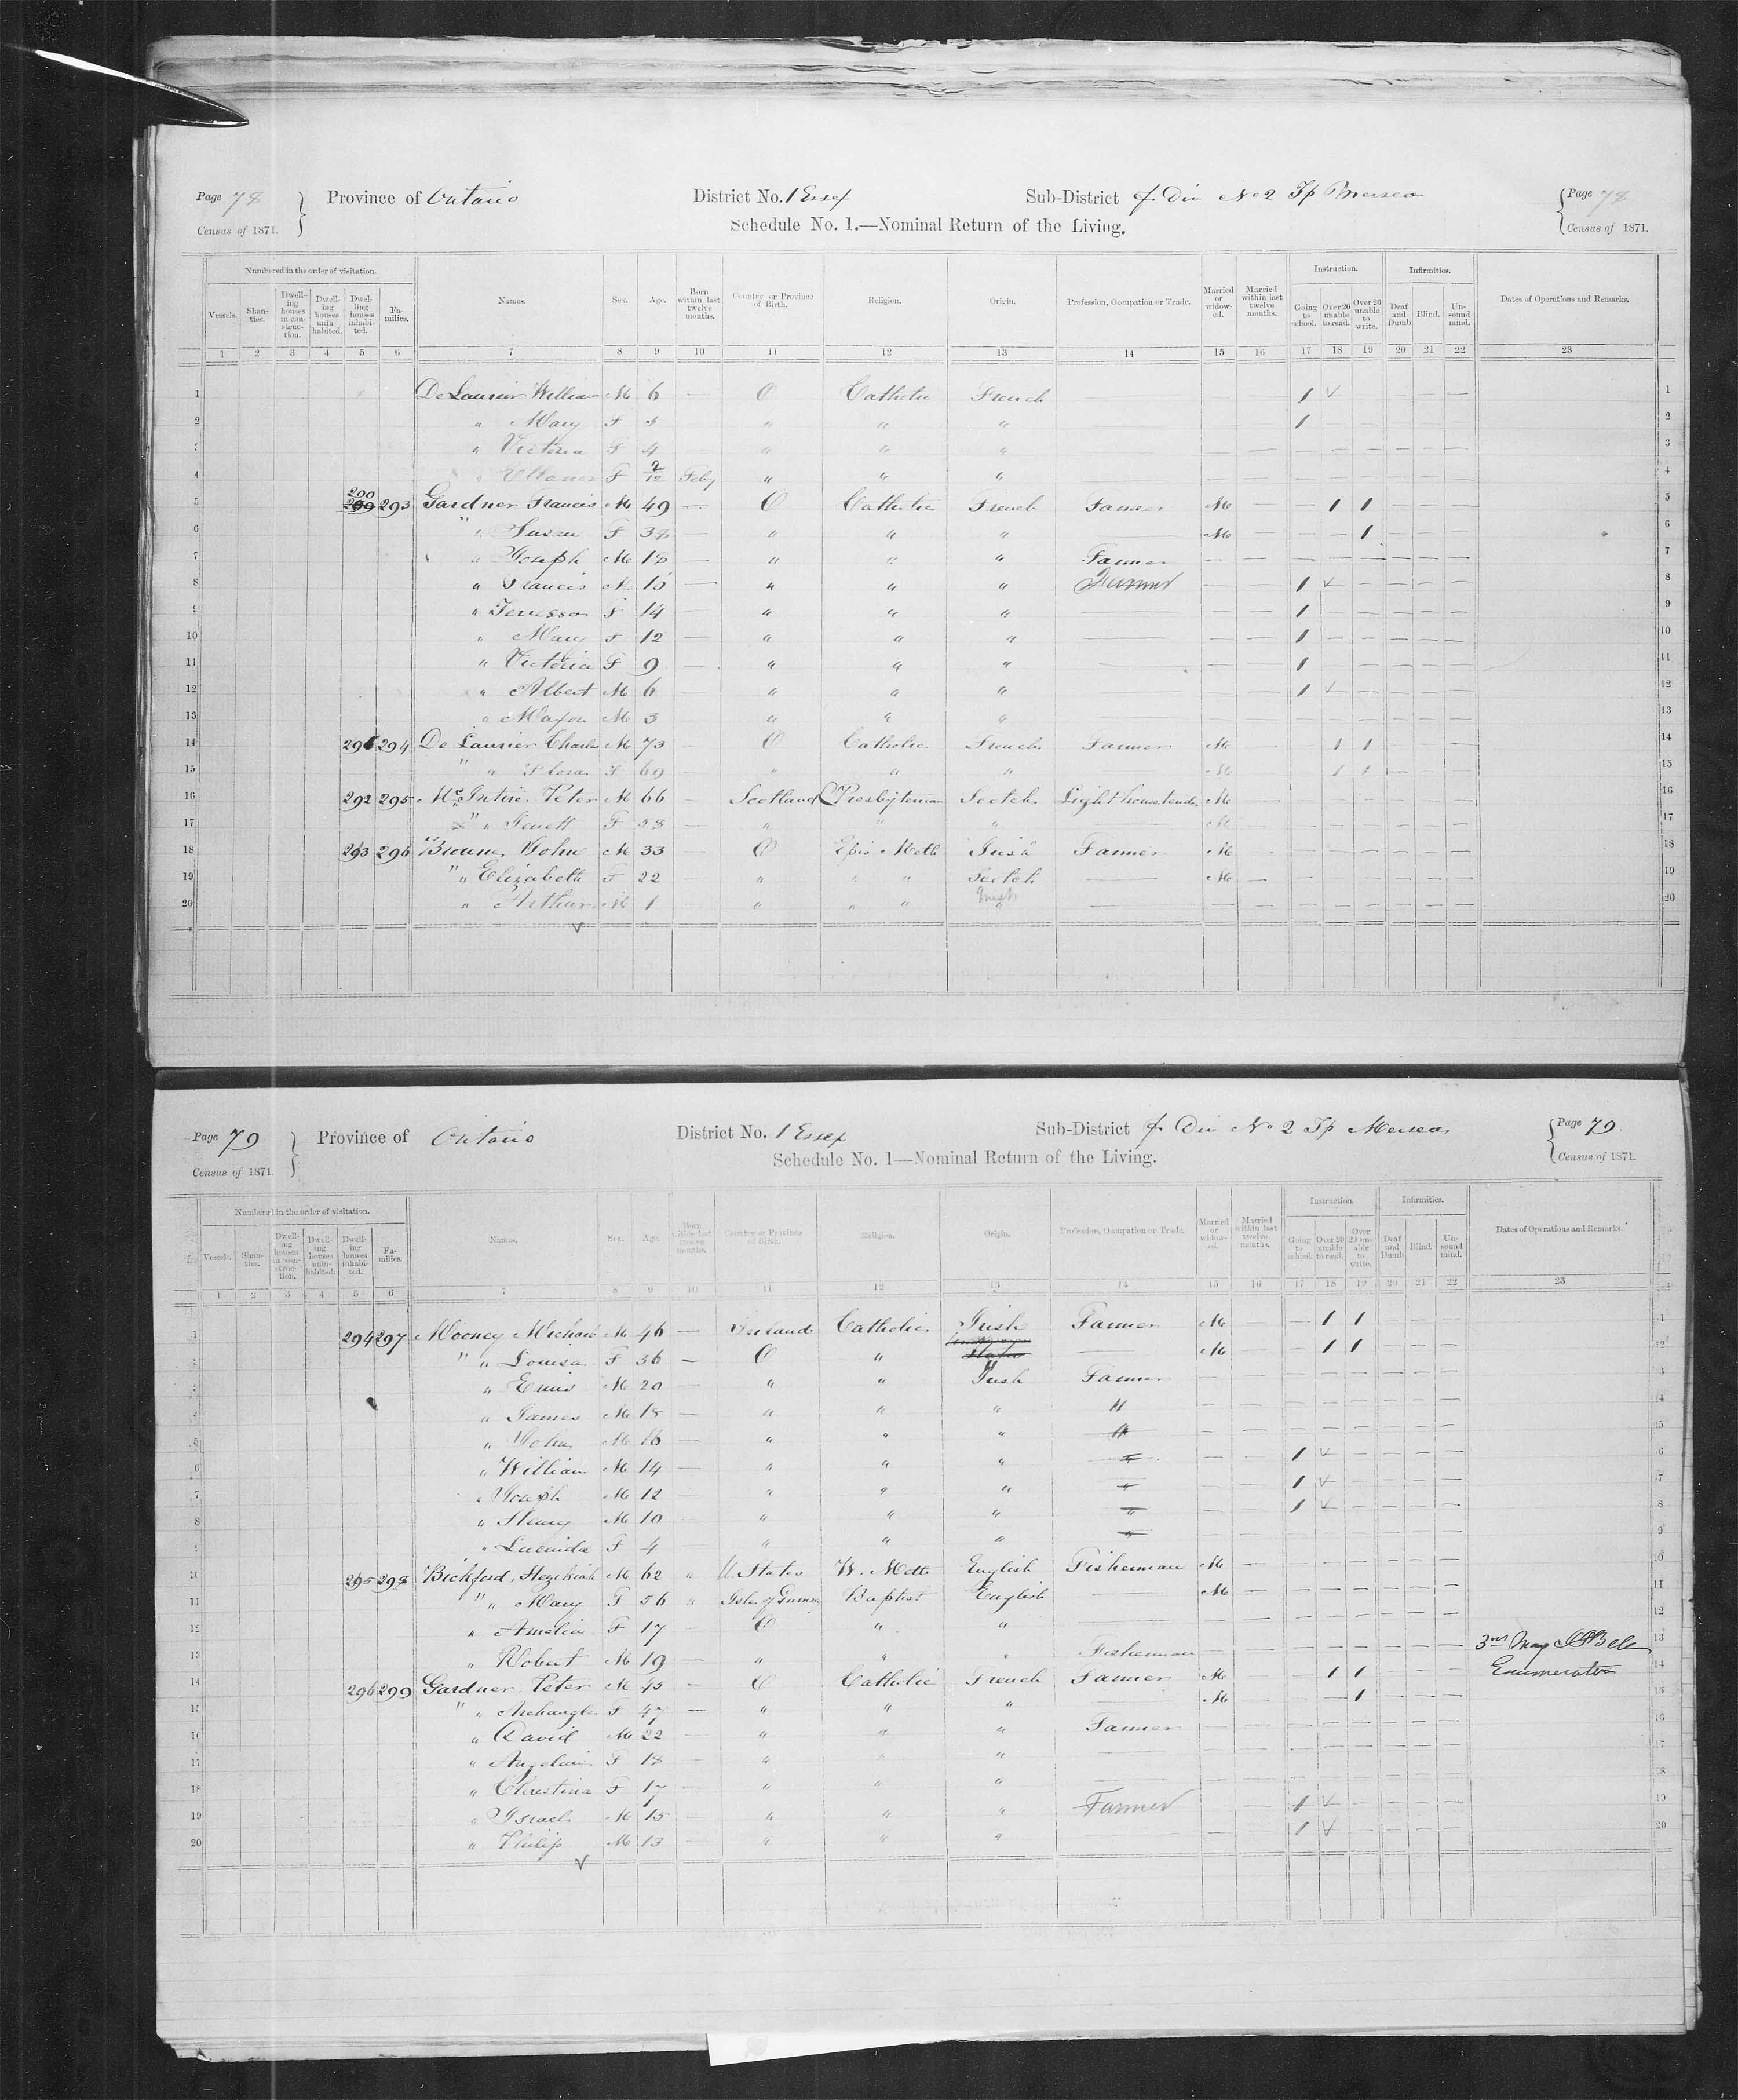 Page 78 Province of Ontario District No. 1 Essex Sub-District f Div No 2 Tp Mersea Page 78
Census of 1871. Schedule No. 1.—Nominal Return of the Living. Census of 1871.
Numbered in the order of visitation. Instruction. Infirmities.
Vessels. Shanties. Dwelling houses in construction. Dwelling houses uninhabited. Dwelling houses inhabited. Families. Names. Sex. Age. Born within last twelve months. Country or Province of Birth. Religion. Origin. Profession, Occupation or Trade. Married or widowed. Married within last twelve months. Going to school. Over 20 unable to read. Over 20 unable to write. Deaf and Dumb Blind. Unsound mind. Dates of Operations and Remarks.
1 2 3 4 5 6 7 8 9 10 11 12 13 14 15 16 17 18 19 20 21 22 23
1 De Laurier William M 6 — O Catholic French — — — 1 ✓ — — — — 1
2 " Mary F 5 — " " " — — — 1 — — — — — 2
3 " Victoria F 4 — " " " — — — — — — — — — 3
4 " F 2/12 Feby " " " — — — — — — — — — 4
5 293 Gardner Francis M 49 — O Catholic French Farmer M — — 1 1 — — — 5
6 " Susan F 38 — " " " — M — — — 1 — — — 6
7 " Joseph M 18 — " " " Farmer — — — — — — — — 7
8 " Francis M 15 — " " " Farmer — — 1 ✓ — — — — 8
9 " F 14 — " " " — — — 1 — — — — — 9
10 " Mary F 12 — " " " — — — 1 — — — — — 10
11 " Victoria F 9 — " " " — — — 1 — — — — — 11
12 " Albert M 6 — " " " — — — 1 ✓ — — — — 12
13 " M 3 — " " " — — — — — — — — — 13
14 291 294 De Laurier Charles M 73 — O Catholic French Farmer M — — 1 1 — — — 14
15 " " Flora F 69 — " " " — M — — 1 1 — — — 15
16 292 295 McIntire Peter M 66 — Scotland Presbyterian Scotch Light house tender M — — — — — — — 16
17 " " Jenett F 58 — " " " — M — — — — — — — 17
18 293 296 Browne John M 33 — O Epis Meth Irish Farmer M — — — — — — — 18
19 " " Elizabeth F 22 — " " " Scotch — M — — — — — — — 19
20 " Arthur M 1 — " " " Irish — — — — — — — — — 20
Page 79 Province of Ontario District No. 1 Essex Sub-District f Div No 2 Tp Mersea Page 79
Census of 1871. Schedule No. 1—Nominal Return of the Living. Census of 1871.
Numbered in the order of visitation. Instruction. Infirmities.
Vessels. Shanties. Dwelling houses in construction. Dwelling houses uninhabited. Dwelling houses inhabited. Families. Names. Sex. Age. Born within last twelve months. Country or Province of Birth. Religion. Origin. Profession, Occupation or Trade. Married or widowed. Married within last twelve months. Going to school. Over 20 unable to read. Over 20 unable to write. Deaf and Dumb Blind. Unsound mind. Dates of Operations and Remarks.
1 2 3 4 5 6 7 8 9 10 11 12 13 14 15 16 17 18 19 20 21 22 23
1 294 297 Mooney Michael M 46 — Ireland Catholic Irish Farmer M — — 1 1 — — — 1
2 " " Louisa F 36 — O " — M — — 1 1 — — — 2
3 " M 20 — " " Irish Farmer — — — — — — — — 3
4 " James M 18 — " " " " — — — — — — — — 4
5 " John M 16 — " " " " — — — — — — — — 5
6 " William M 14 — " " " " — — 1 ✓ — — — — 6
7 " Joseph M 12 — " " " " — — 1 ✓ — — — — 7
8 " Henry M 10 — " " " " — — 1 ✓ — — — — 8
9 " Lucinda F 4 — " " " " — — — — — — — — 9
10 295 298 Bickford, Hezikiah M 62 " U. States W. Meth English Fisherman M — — — — — — — 10
11 " " Mary F 56 " Baptist English — M — — — — — — — 11
12 " Amelia F 17 — O " " — — — — — — — — — 12
13 " Robert M 19 — " " " Fisherman — — — — — — — — 3rd May Bell 13
14 296 299 Gardner Peter M 45 — O Catholic French Farmer M — — 1 1 — — — Enumerator 14
15 " " Archangle F 47 — " " " — M — — — 1 — — — 15
16 " David M 22 — " " " Farmer — — — — — — — — 16
17 " F 18 — " " " — — — — — — — — — 17
18 " Christina F 17 — " " " — — — — — — — — — 18
19 " Israel M 15 — " " " Farmer — — 1 ✓ — — — — 19
20 " Philip M 13 — " " " — — — 1 ✓ — — — — 20